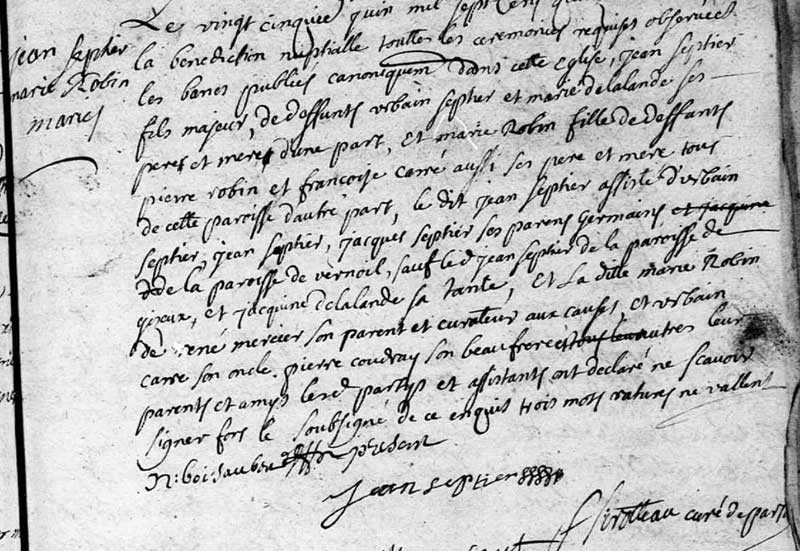 jean septier
marie Robin
mariez
Les vingt cinquiee juin mil sept cens
la benediction nuptialle touttes les ceremonies requises observées
les bancs publiés canoniquem dans cette Eglise, jean septier
fils majeur, de deffunts urbain septier et marie delalande ses
peres et meres d'une part, et marie Robin fille de deffants
pierre robin et francoise carré aussi ses pere et mere tous
de cette paroisse d'autre part, le dit jean septier assisté d'urbain
septier, jean septier, jacques septier ses parens germains et jacquine
de la paroisse de vernoil, sauf le d jean septier de la paroisse de
gizeux, et jacquine delalande sa tante, et La ditte marie Robin
de rené mercier son parent et curateur aux causes, et urbain
carre son oncle, pierre coudray son beaufrere et tous leurs autres leur
parents et amys lesd partyes et assistants ont declaré ne scavoir
signer fors le soubsigné de ce enquis trois mots ratures ne vallent
N: boisaubea present
Jean septier
curé de parsé